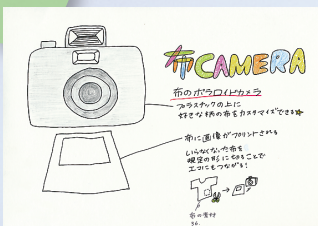 布CAMERA
布のポラロイドカメラ
プラスチックの上に
好きな柄の布をカスタマイズできる☆
布に画像がプリントされる
いらなくなった布を
規定の形に切ることで
エコにもつながる!
布の素材